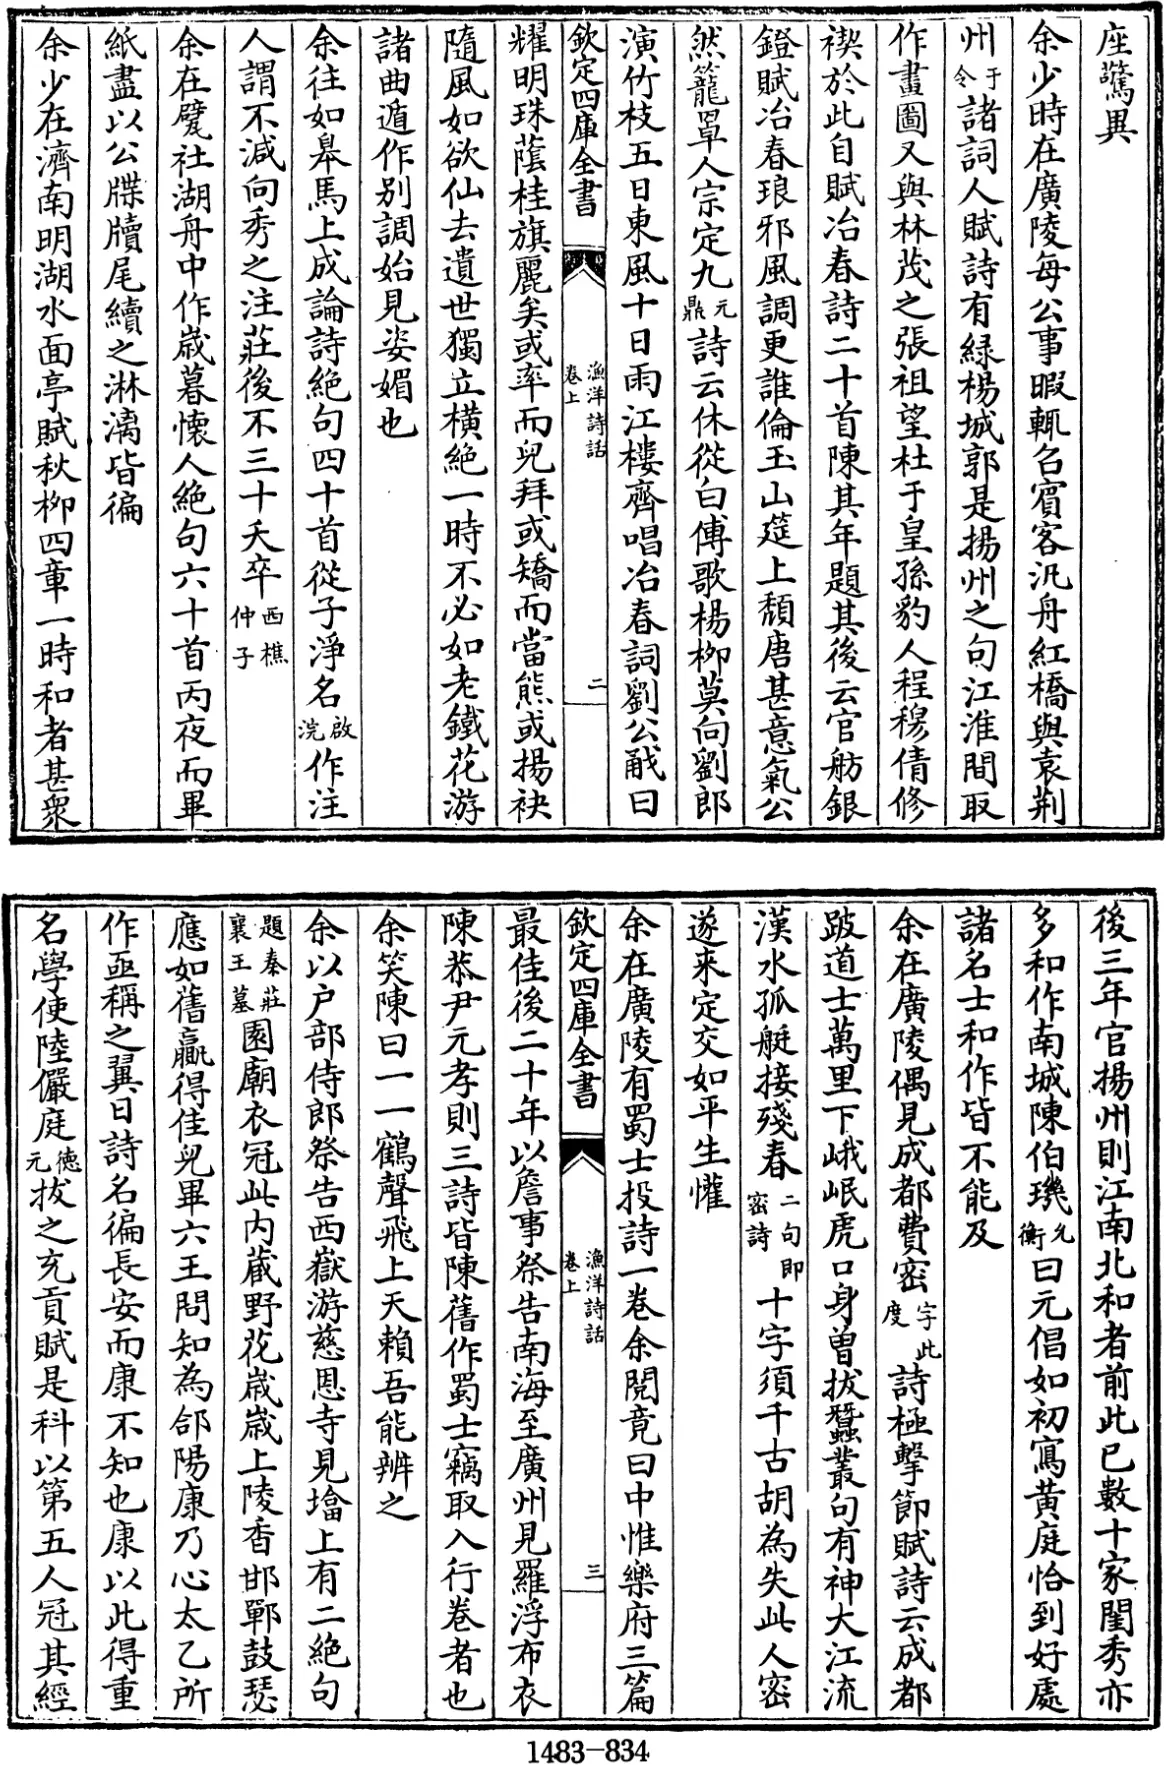 座驚異
余少時在廣陵每公事暇輒召賓客汎舟紅橋與袁荆
州于令諸詞人賦詩有緑楊城郭是揚州之句江淮間取
作畫圖又與林茂之張祖望杜于皇孫豹人程穆倩修
禊於此自賦冶春詩二十首陳其年題其後云官舫銀
鐙賦冶春琅邪風調更誰倫玉山筵上頽唐甚意氣公
然籠罩人宗定九元鼎詩云休從白傅歌楊柳莫向劉郎
演竹枝五日東風十日雨江樓齊唱冶春詞劉公㦷曰
欽定四庫全書 漁洋詩話 卷上 二
耀明珠蔭桂旗麗矣或率而兒拜或矯而當熊或揚袂
隨風如欲仙去遺世獨立横絶一時不必如老鐵花游
諸曲遁作别調始見姿媚也
余往如皋馬上成論詩絶句四十首從子淨名啟浣作注
人謂不減向秀之注莊後不三十夭卒西樵仲子
余在甓社湖舟中作嵗暮懷人絶句六十首丙夜而畢
紙盡以公牒牘尾續之淋漓皆徧
余少在濟南明湖水面亭賦秋柳四章一時和者甚衆
後三年官揚州則江南北和者前此已數十家閨秀亦
多和作南城陳伯璣允衡曰元倡如初寫黄庭恰到好處
諸名士和作皆不能及
余在廣陵偶見成都費密字此度詩極擊節賦詩云成都
跛道士萬里下峨岷虎口身曽拔蠶叢句有神大江流
漢水孤艇接殘春二句即密詩十字須千古胡為失此人密
遂来定交如平生懽
余在廣陵有蜀士投詩一卷余閲竟曰中惟樂府三篇
欽定四庫全書 漁洋詩話 卷上 三
最佳後二十年以詹事祭告南海至廣州見羅浮布衣
陳恭尹元孝則三詩皆陳舊作蜀士竊取入行卷者也
余笑陳曰一一鶴聲飛上天賴吾能辨之
余以户部侍郎祭告西嶽游慈恩寺見墖上有二絶句
題秦莊襄王墓園廟衣冠此内蔵野花嵗嵗上陵香邯鄲鼓瑟
應如舊贏得佳兒畢六王問知為郃陽康乃心太乙所
作亟稱之翼日詩名徧長安而康不知也康以此得重
名學使陸儼庭德元拔之充貢賦是科以第五人冠其經
1483-834